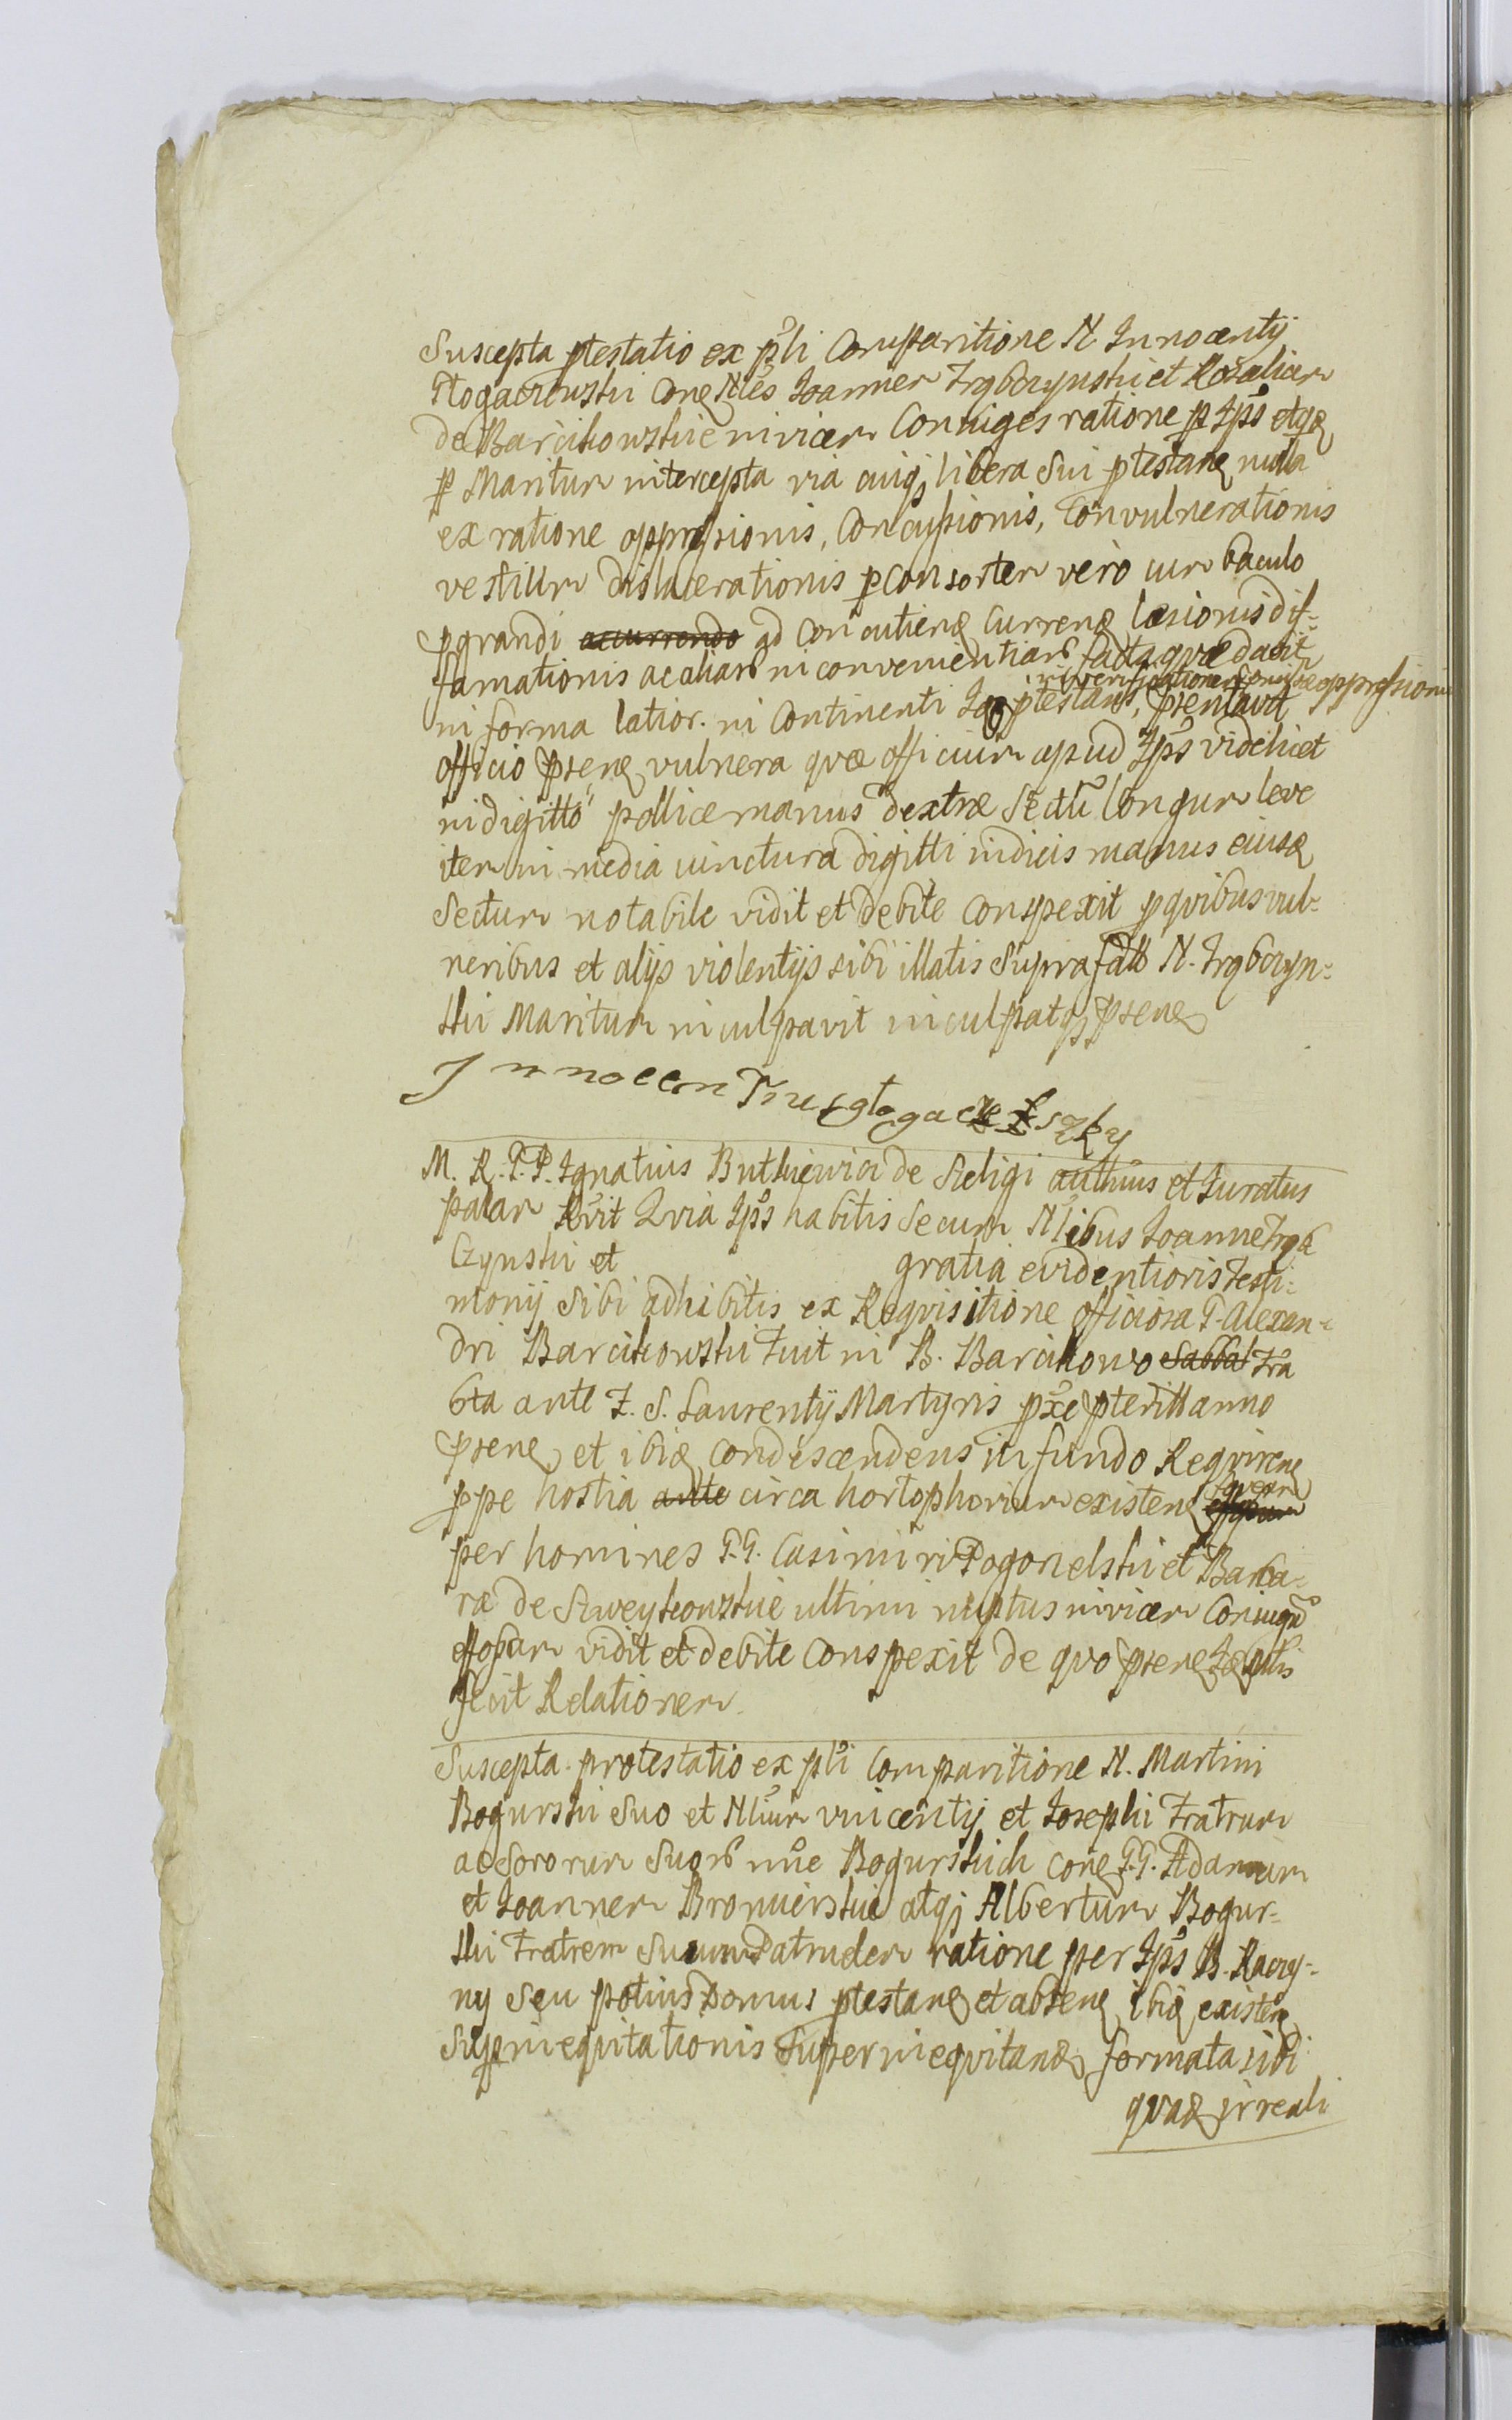 Suscepta ptestatio ex pŝli Comparitione N. Innocentij
Rogaczewski Conq Nlẽs Joannem Trąbczynski et Rozaliam
de Barcikowskie invicem Coniuges ratione p Ips̃ etqq
p Maritum intercepta via cuiqj libera Sui ptestanq nulla
ex ratione oppressionis, Concussionis, Convulnerationis
vestium dislacerationis p Consortem vero cum baculo
pgrandi accurrendo ad Concutienq Currenq læsionis dif-
famationis ac aliarũ inconvenientiarũ facta quæ dacit
in verificationem
oppressionis
in forma latior. in Continenti Idq ptestans, psentavit
officio psenq vulnera quæ officium apud Ips̃ videlicet
in digitto pollice manus dextræ Sectũ longum leve
item in media iunctura digitti indicis manus eiusq
Sectum notabile vidit et debite Conspexit p quibus vul-
neribus et alijs violentijs sibi illatis Supra fatt N. Trąbczyn-
ski Maritum inculpavit inculpatqj psenq
Innocenti Rogaczeszky
M. R. P.P. Ignatius Butkiewicz de Religi authũs et Juratus
palam Rvit Quia Ips̃ habitis Secum Nlibus Joanne Trąb
Czynski et gratia evidentioris Testi-
monij Sibi adhibitis ex Requisitione officiosa P. Alexan-
dri Barcikowski Fuit in B. Barcikowo Sabbat Fra
6ta ante F. S. Laurentij Martyris px̃e pteritt anno
psenq et ibiq condescendens in fundo Requirenq
ppe hostia ante circa hortophorium existenq
per homines P.P. Casimiri Pogorzelski et Barba-
ræ de Szweykowskie ultimi nuptus invicem Coniugũ
effossam vidit et debite Conspexit de quo psenq
fecit Relationem.
Suscepta protestatio ex pŝli Comparitione N. Martini
Bogurski Suo et Nlium Vincentij et Josephi Fratrum
ac Sororum Suorũ nñe Bogurskich conq P.P. Adamum
et Joannem Bromierskie atqj Albertum Bogur-
ski Fratrem Suum Patruelem ratione per Ips̃ B. Raczy-
ny Seu potius Domus ptestanq et absenq ibiq existenq
Superinequitationis Superinequitandq formata sibi
quadq irreali